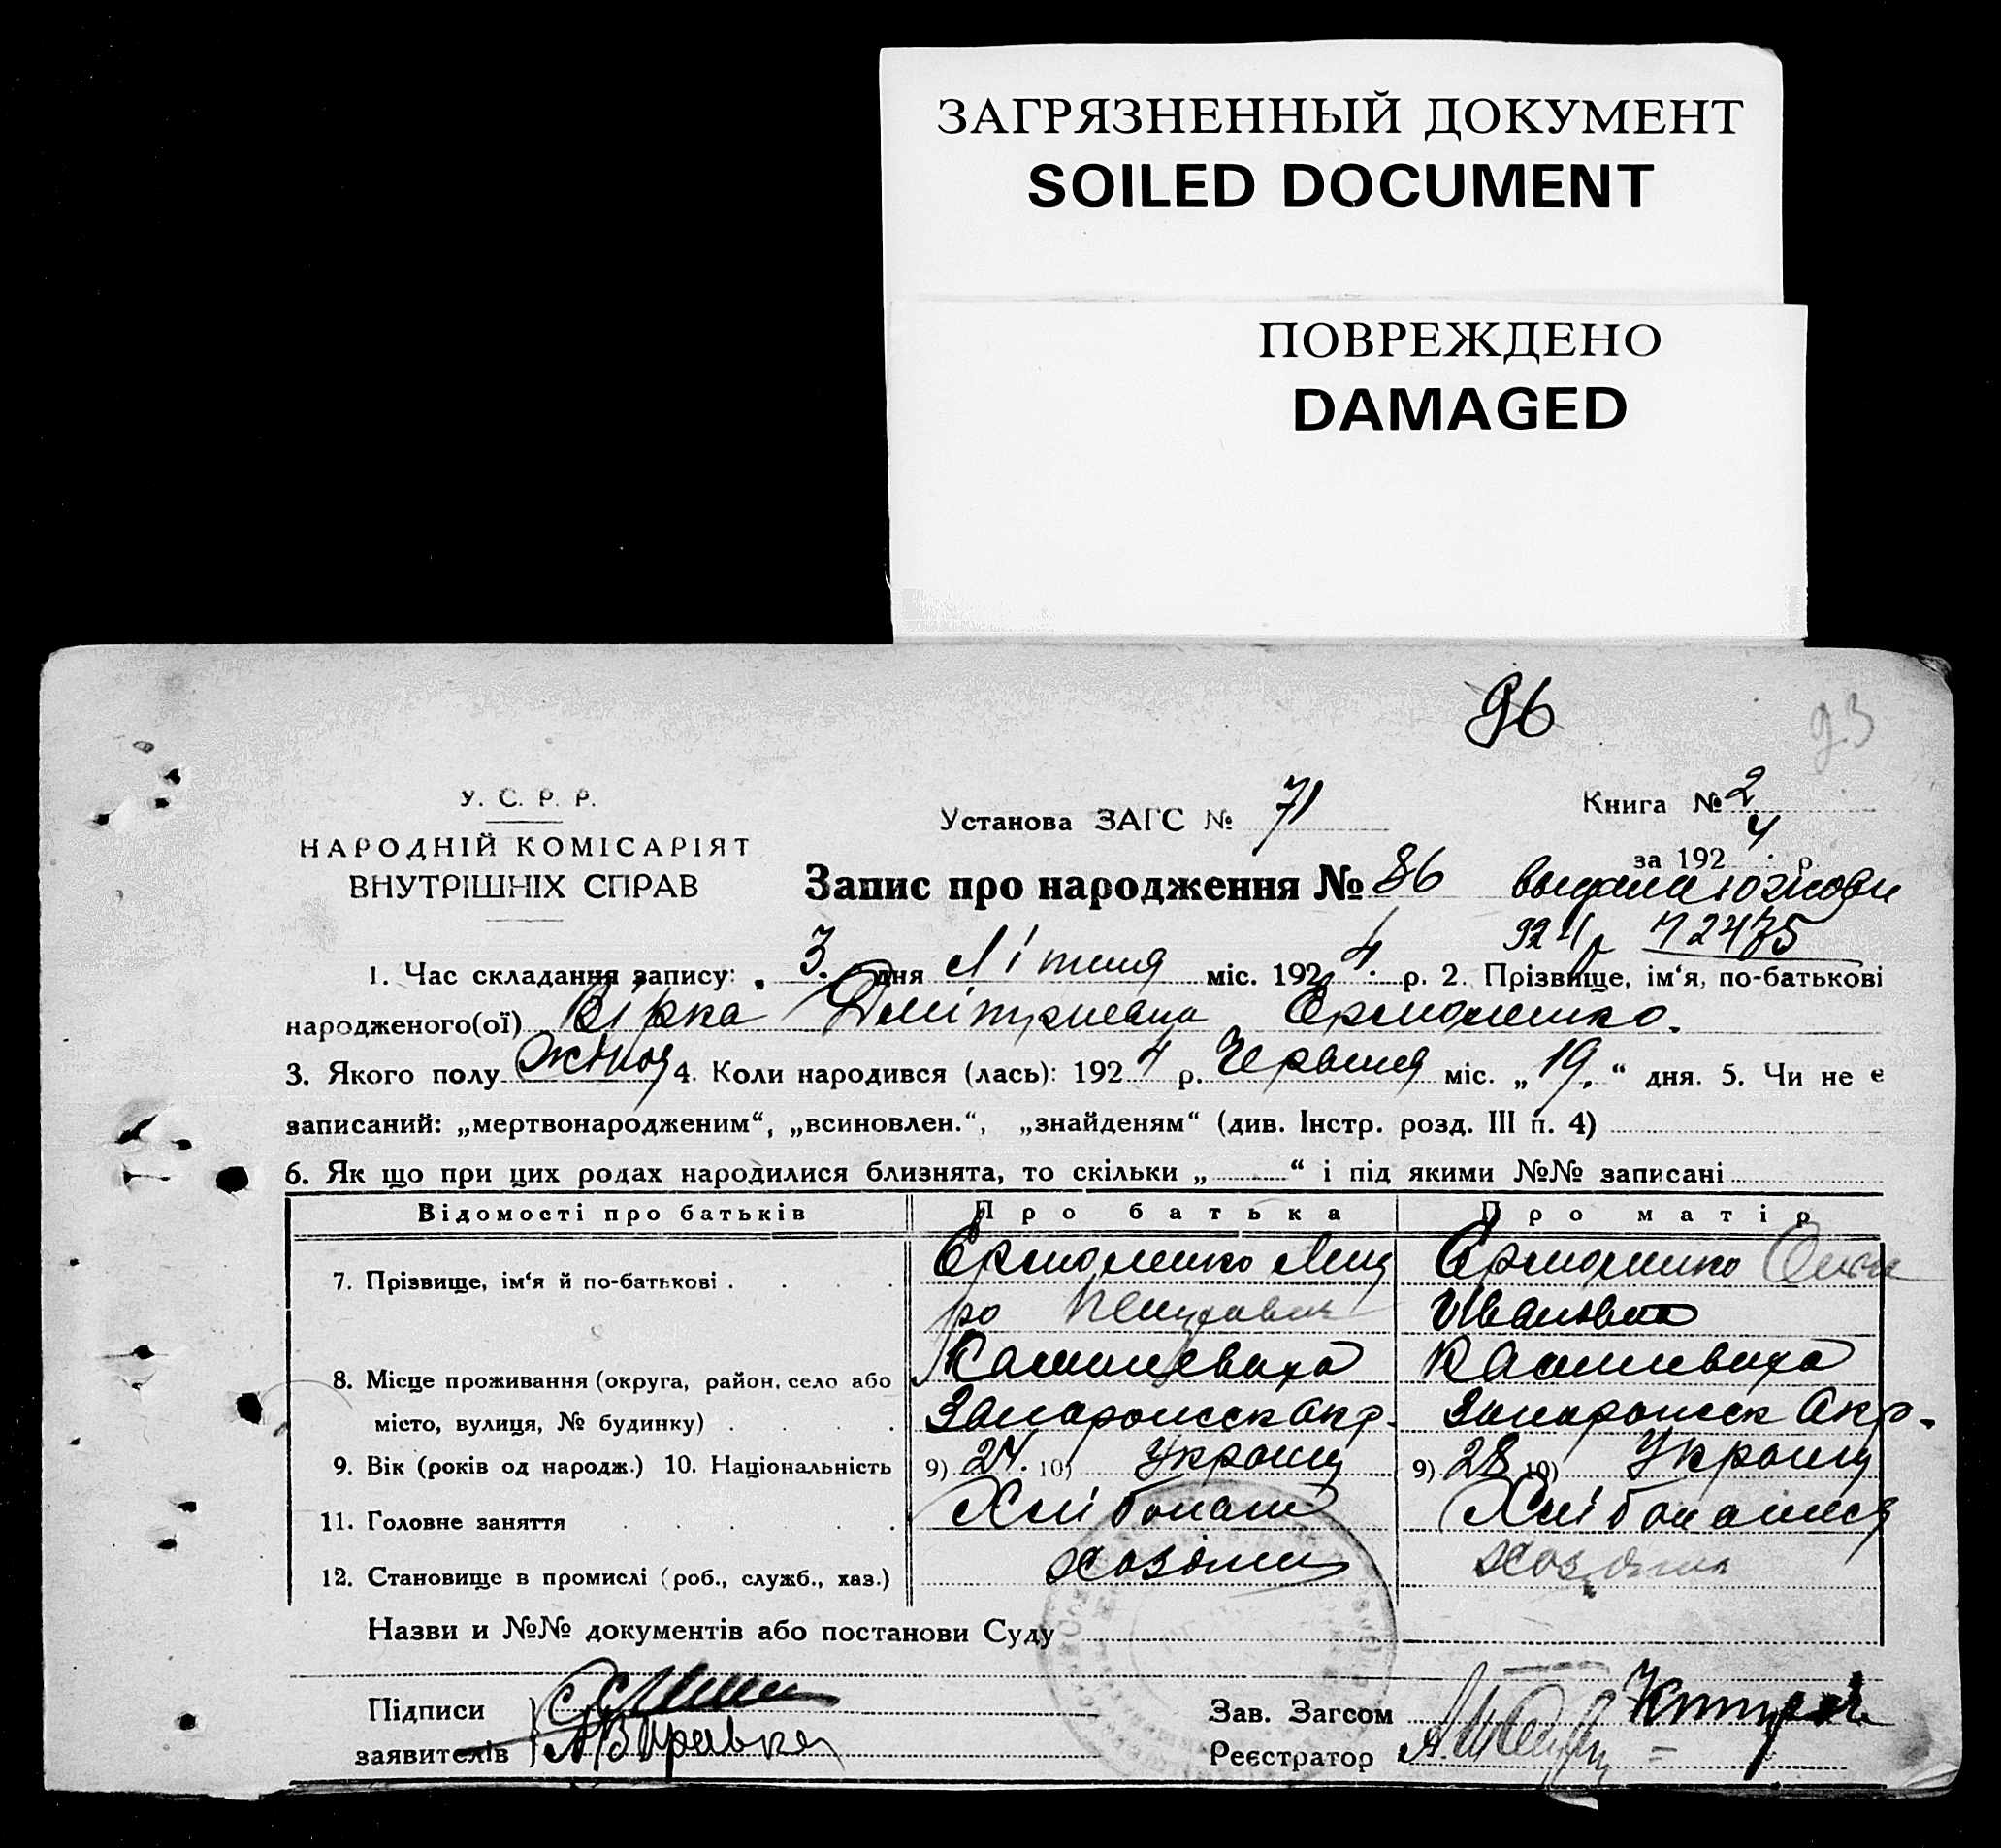 ЗАГРЯЗНЕННЫЙ ДОКУМЕНТ
SOILED DOCUMENT
ПОВРЕЖДЕНО
DAMAGED
96
93
У. С. Р. Р.
НАРОДНІЙ КОМІСАРІЯТ
ВНУТРІШНІХ СПРАВ
Установа ЗАГС № 71
Книга № 2
за 1924 р.
Запис про народження № 86
924 р 12475
1. Час складання запису: „3.“ дня Літня міс. 1924. р. 2. Прізвище, ім‘я, по-батькові
народженого(ої) Вірка Дмітриевна Ермоленко.
3. Якого полу жіноч 4. Коли народився (лась): 1924 р. Червня міс. „19.“ дня. 5. Чи не є
записаний: „мертвонародженим“, „всиновлен.“, „знайденям“ (див. Інстр. розд. III п. 4)
6. Як що при цих родах народилися близнята, то скільки „ “ і під якими №№ записані
Відомості про батьків Про батька Про матір
7. Прізвище, ім‘я й по-батькові . . . . Ермоленко Ермоленко
Івановна
8. Місце проживання (округа, район, село або
місто, вулиця, № будинку) . . . .
9. Вік (років од народж.) 10. Національність 9) 24. 10) Украин 9) 28 10) Украин
11. Головне заняття . . . . Хлібопаш
12. Становище в промислі (роб., служб., хаз.) хозяин
Назви и №№ документів або постанови Суду
Підписи
заявителів
Зав. Загсом
Реєстратор